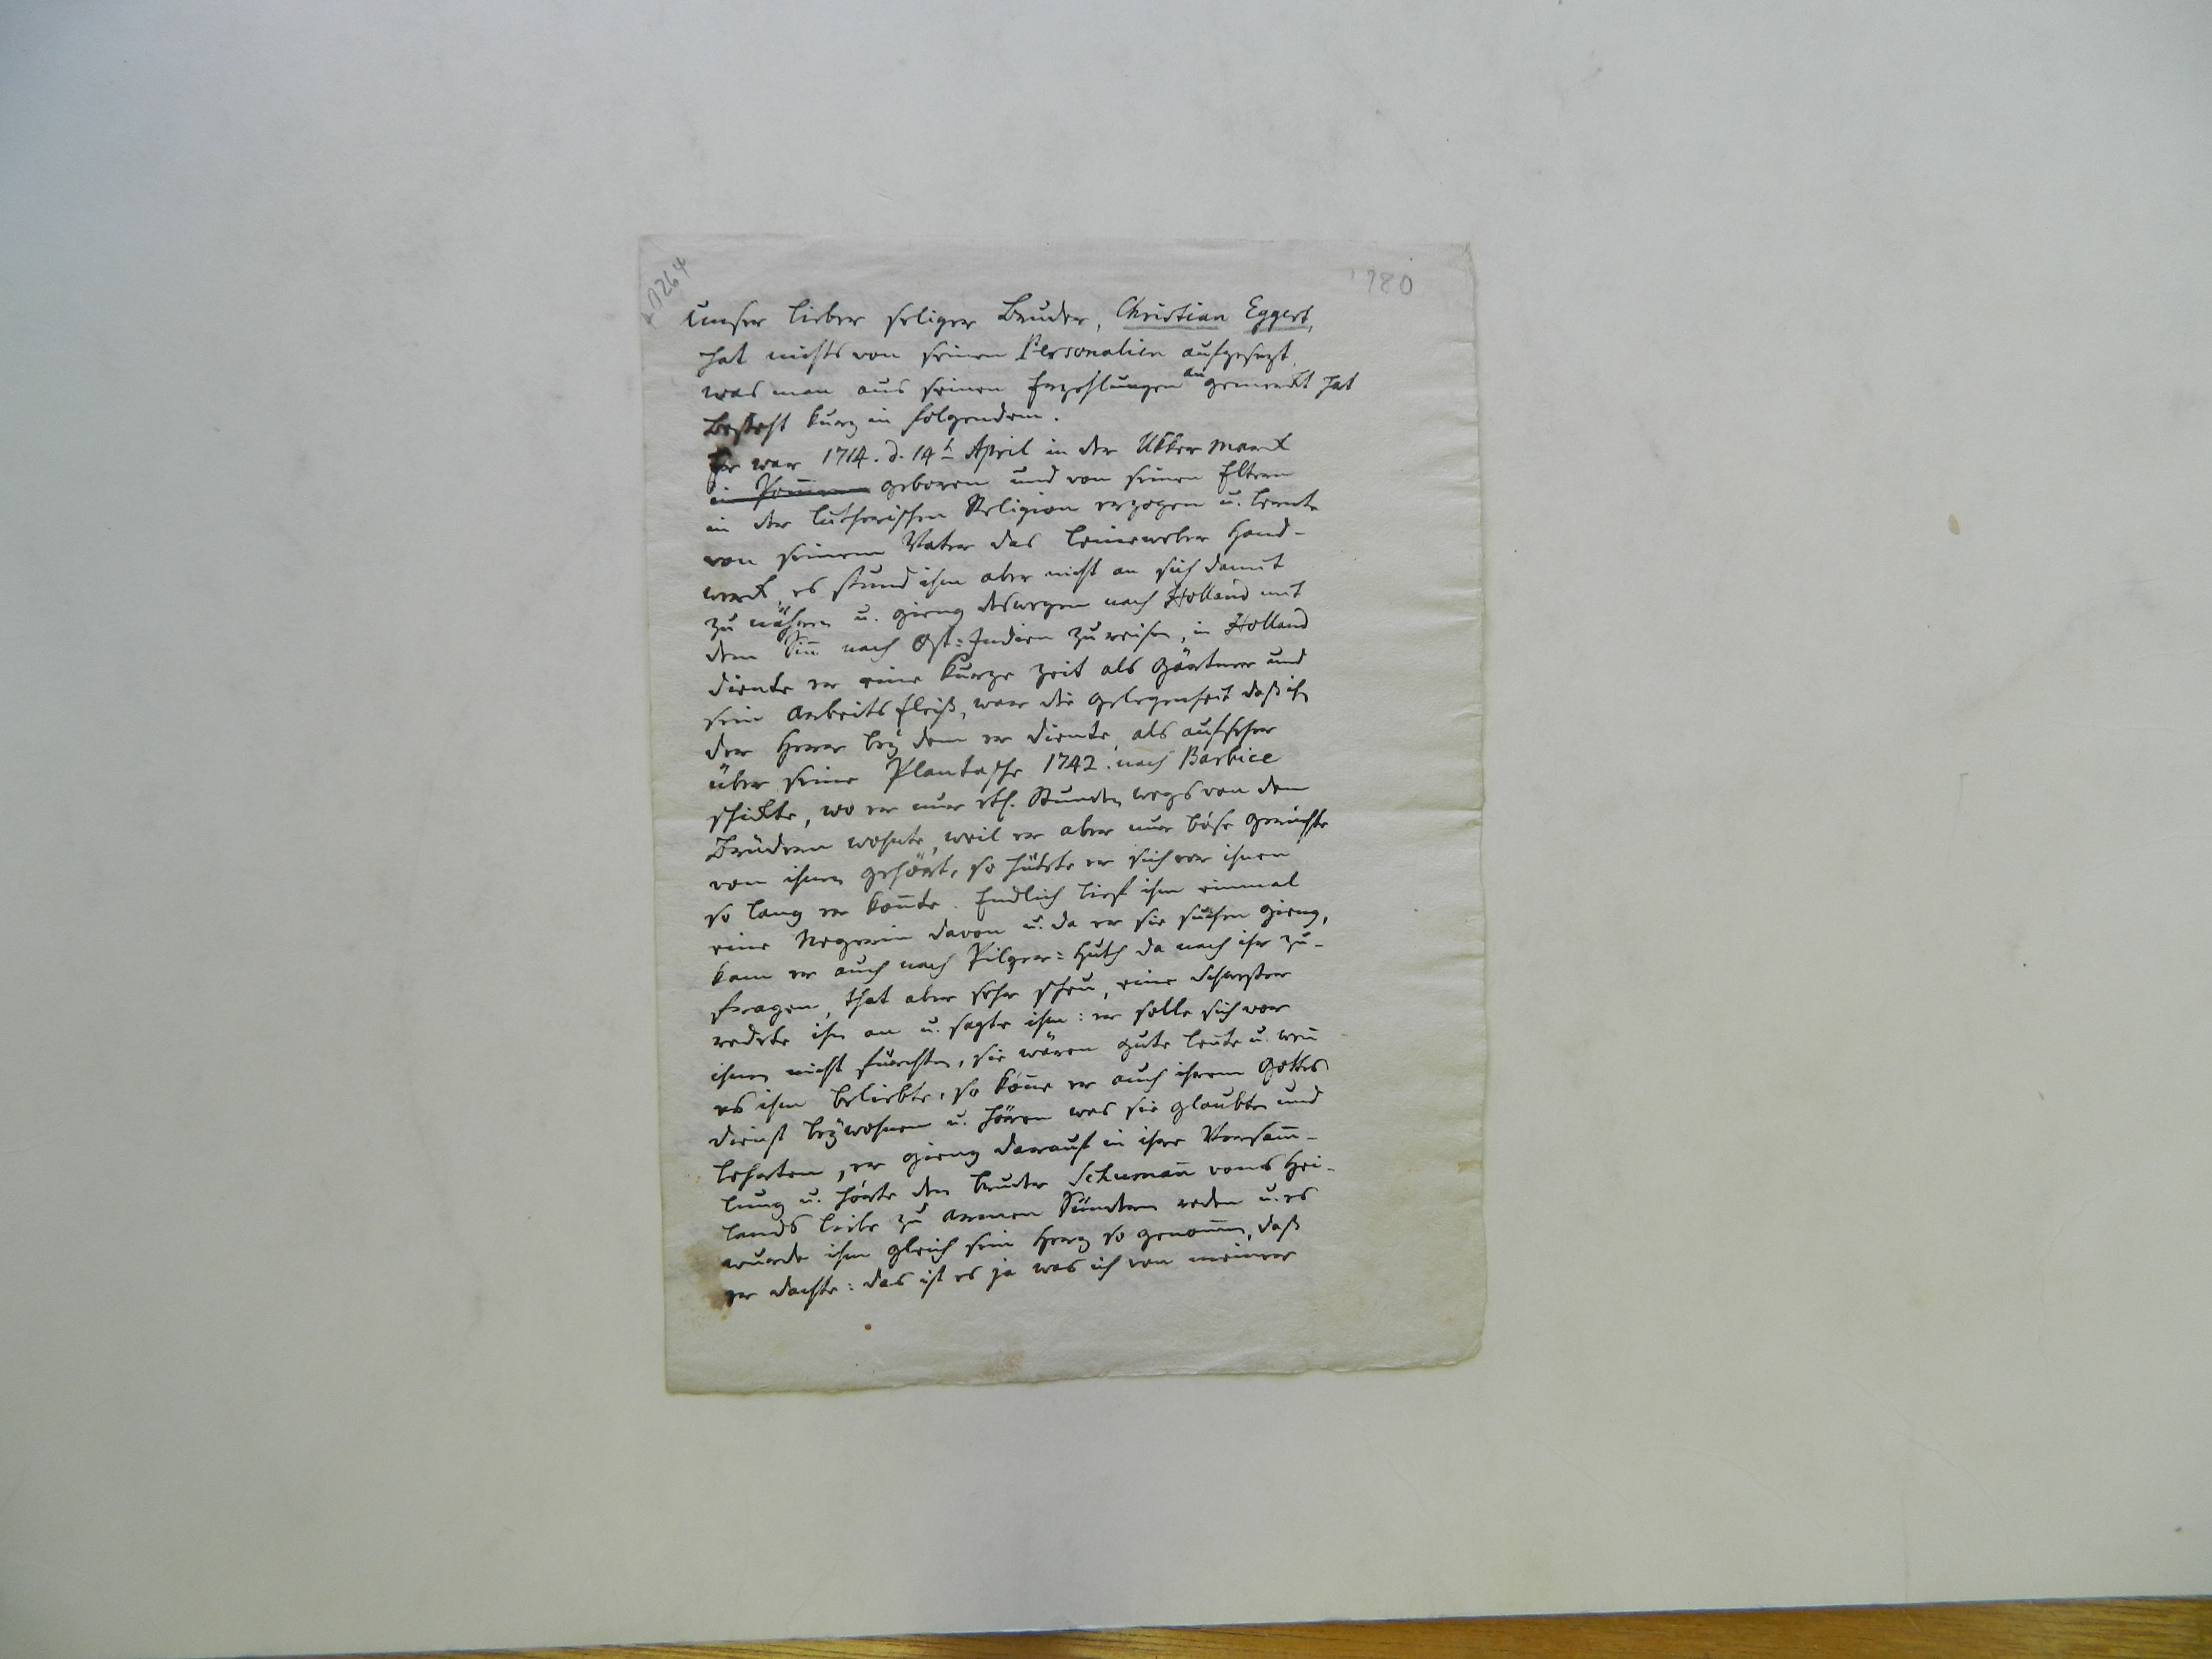 1264
780
Unser lieber seliger Bruder, Christian Eggert,
hat nichts von seinen Personalien aufgesezt,
was man aus seinen Erzehlungen angemerckt hat
besteht kurz in folgendem.
Er war 1714. d. 14t April in der Ukker Marck
in Pom̄ern geboren und von seinen Eltern
in der lutherischen Religion erzogen u. lernte
von seinem Vater das Leineweber Hand-
werck, es stund ihm aber nicht an sich damit
zu nähren u. gieng deswegen nach Holland mit
dem Sin̄ nach Ost-Indien zu reisen, in Holland
diente er eine kurze Zeit als Gärtner und
sein Arbeits fleiß, war die Gelegenheit daß ihn
der Herr bey dem er diente, als aufseher
über seine Plantasche 1742. nach Barbice
schickte, wo er nur etl. Stunden wegs von den
Brüdern wohnte, weil er aber nur böse Gerüchte
von ihnen gehört, so hütete er sich vor ihnen
so lang er kon̄te. Endlich lief ihm einmal
eine Negerin davon u. da er sie suchen gieng,
kam er auch nach Pilger-Huth da nach ihr zu-
fragen, that aber sehr scheu, eine Schwester
redete ihn an u. sagte ihm: er solle sich vor
ihnen nicht fürchten, sie wären gute Leute u. wen̄
es ihm beliebte, so kön̄e er auch ihrem Gottes
dienst beywohnen u. hören was sie glaubten und
lehrten, er gieng darauf in ihre Versam̄-
lung u. hörte den Bruder Schuman̄ von des Hei-
lands Liebe zu armen Sündern reden u. es
wurde ihm gleich sein Herz so genom̄en, daß
er dachte: das ist es ja was ich von meiner